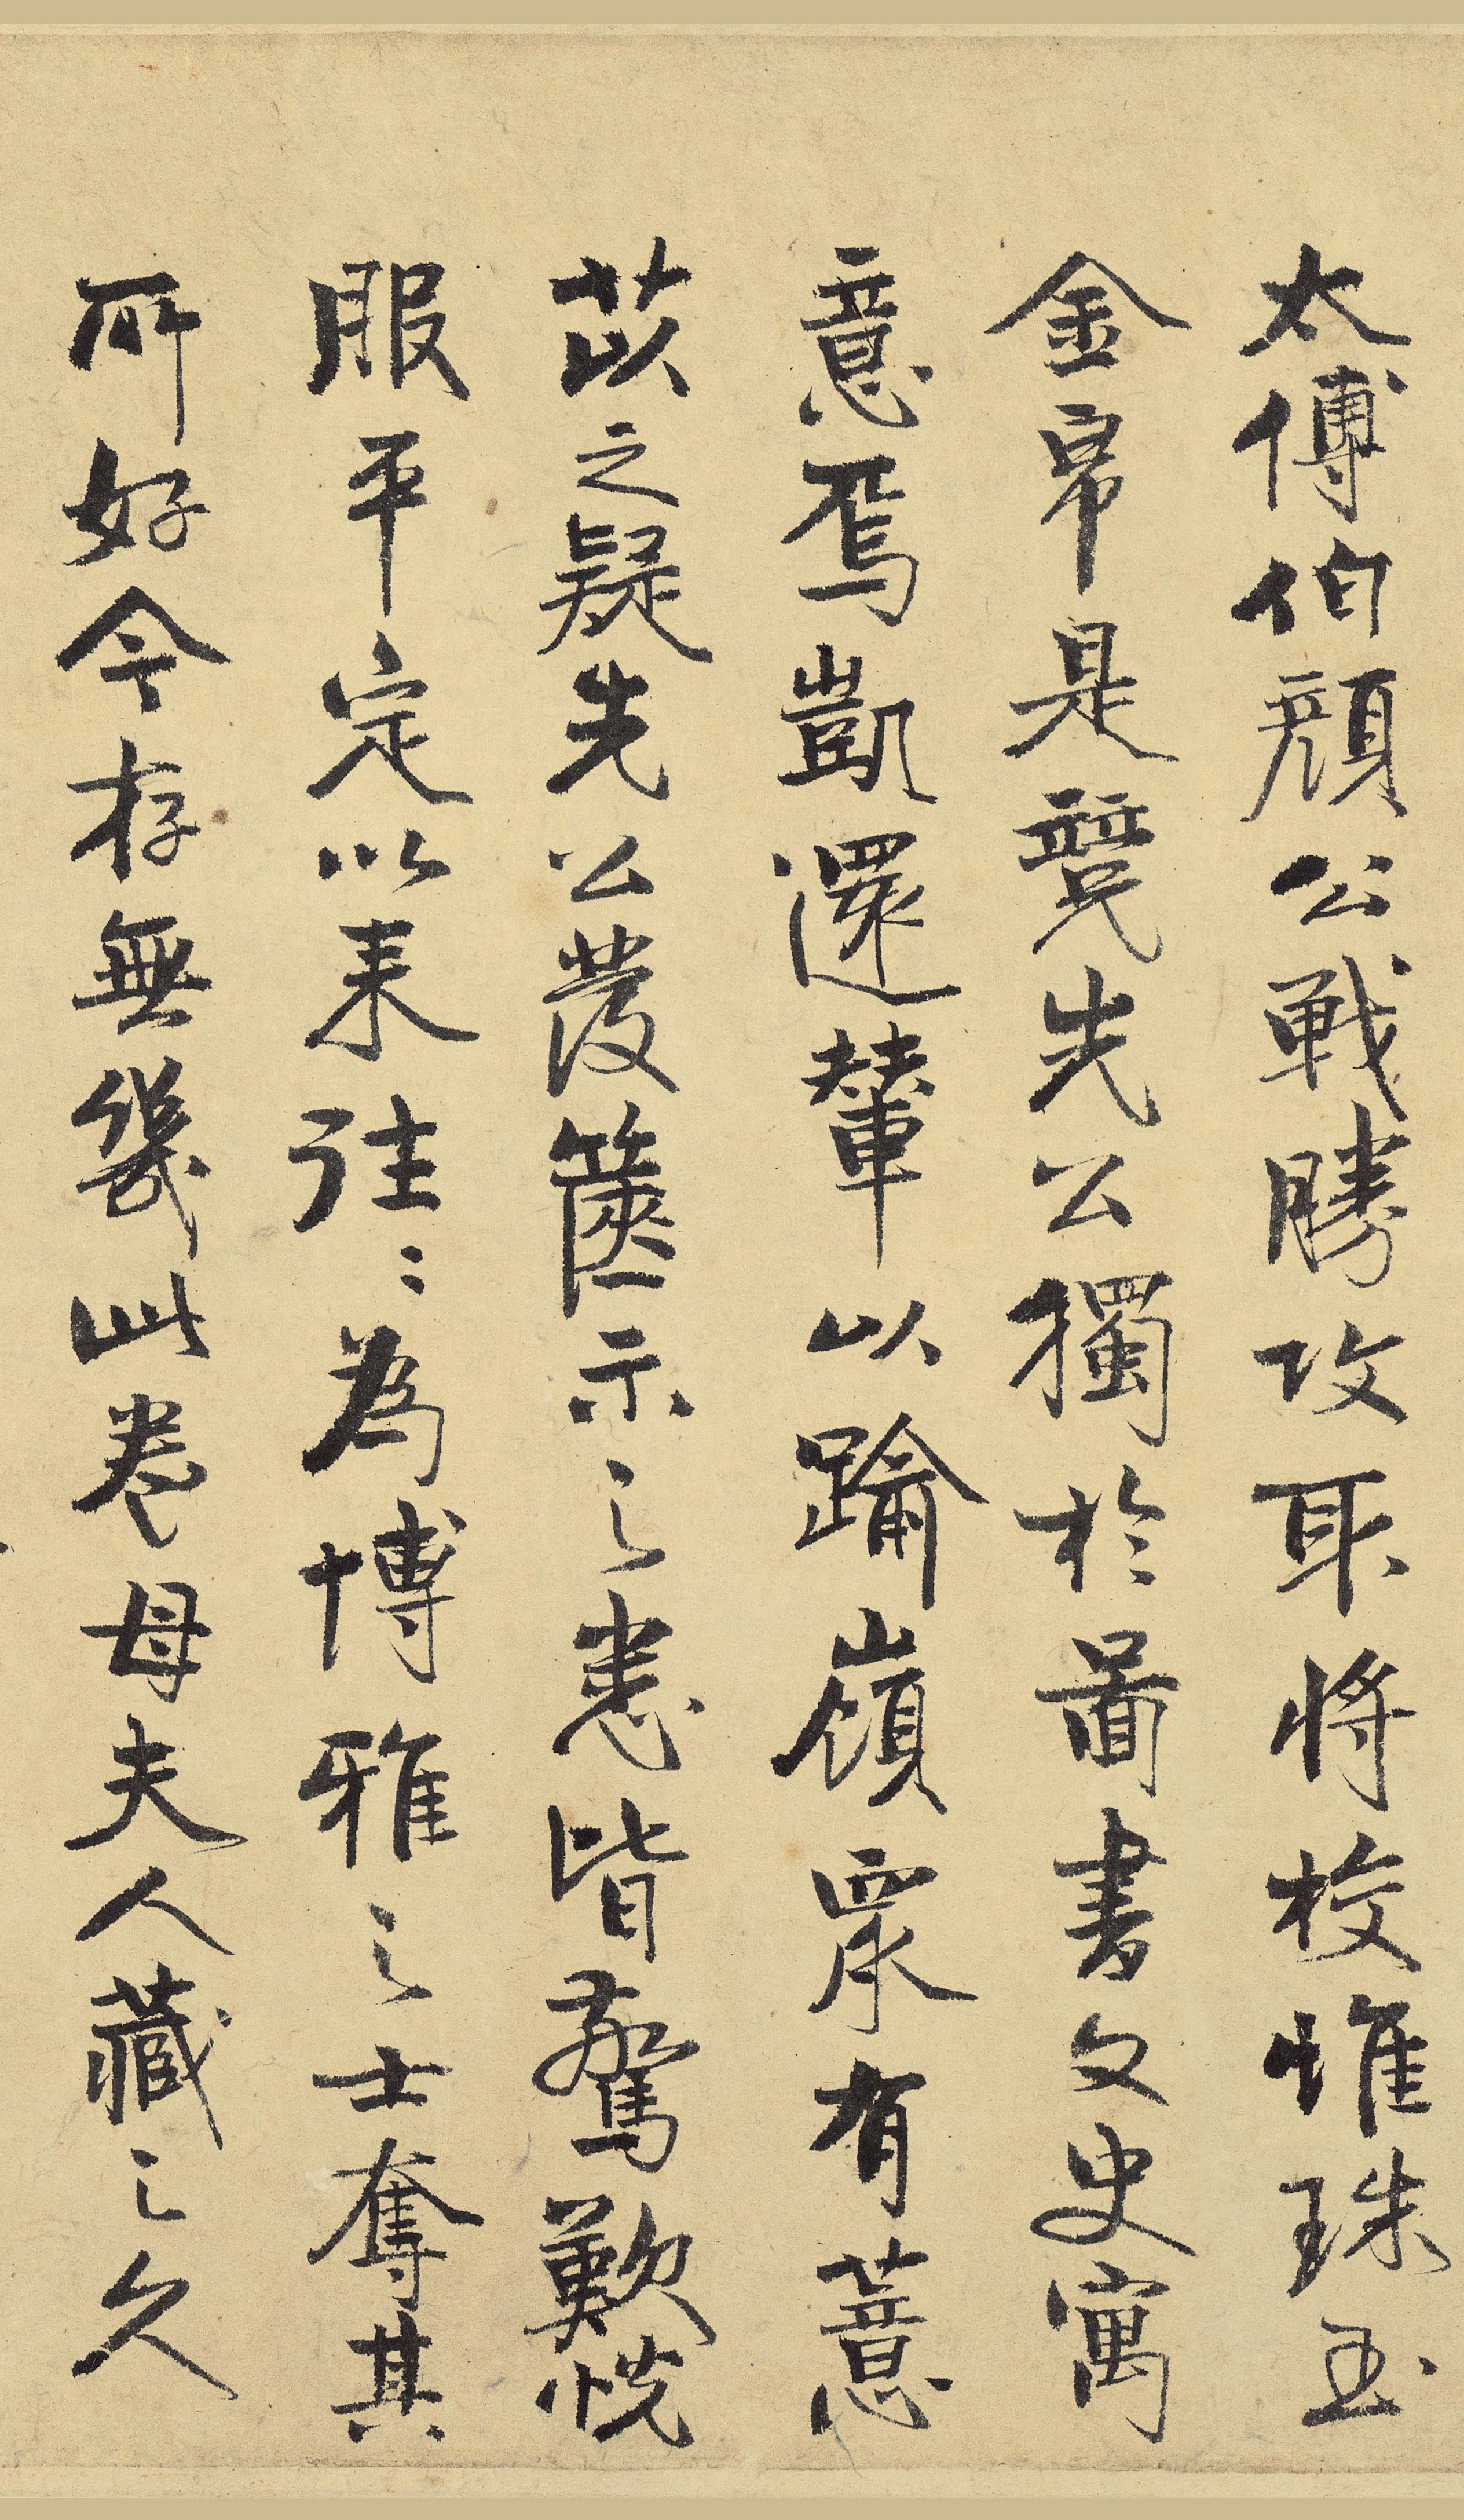 太傅伯顔公戰勝攻取將校惟珠玉
金帛是競先公獨於圖書文史寓
意焉凱還輦以踰嶺衆有薏
苡之疑先公發篋示之悉皆驚歎恱
服平定以来往〻為博雅之士奪其
所好今存無幾此卷母夫人藏之久